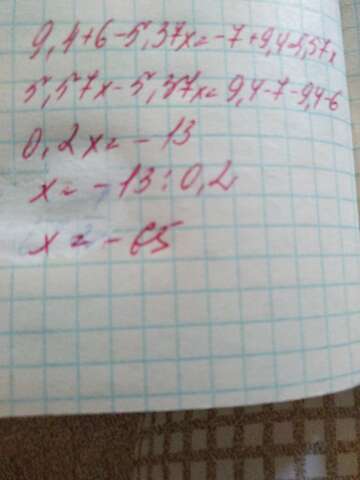 9,4+6-5,37x=-7+9,4-5,57x
5,57x-5,37x=9,4-7-9,4-6
0,2x=-13
x=-13:0,2
x=-65